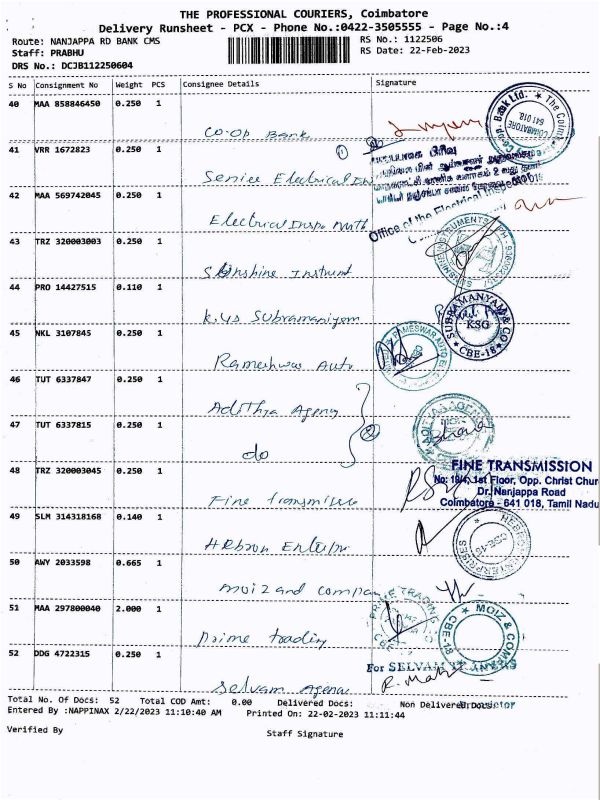 THE PROFESSIONAL COURIERS, Coimbatore
Delivery Runsheet - PCX - Phone No.:0422-3505555 - Page No.:4
Route: NANJAPPA RD BANK CMS
RS No.: 1122506
Staff: PRABHU
RS Date: 22-Feb-2023
DRS No.: DCJB112250604
S No Consignment No Weight PCS Consignee Details Signature
40 MAA 858846450 0.250 1
Co-op Bank
41 VRR 1672823 0.250 1
Senior Electrical Ins
42 MAA 569742045 0.250 1
Electrical Inspe
Office of the Electrical Inspector
43 TRZ 320003003 0.250 1
Sunshine Instrument
44 PRO 14427515 0.110 1
K.y.s Subramaniyam
SUBRAMANYAM & CO
KSG
CBE-18
45 NKL 3107845 0.250 1
Rameshwar Auto
RAMESWAR AUTO
46 TUT 6337847 0.250 1
Adithya Agency
47 TUT 6337815 0.250 1
do
48 TRZ 320003045 0.250 1
Fine transmission
FINE TRANSMISSION
1st Floor, Opp. Christ Chur
Dr. Nanjappa Road
Coimbatore - 641 018, Tamil Nadu
49 SLM 314318168 0.140 1
Hebron Enterprises
50 AWY 2033598 0.665 1
Moiz and company
51 MAA 297800040 2.000 1
Prime trading
PRIME TRADING
MOIZ & COMPANY
52 DDG 4722315 0.250 1
Selvam Agency
For SELVAM AGENCY
Total No. Of Docs: 52 Total COD Amt: 0.00 Delivered Docs: Non Delivered Docs:
Entered By :NAPPINAX 2/22/2023 11:10:40 AM Printed On: 22-02-2023 11:11:44
Verified By
Staff Signature